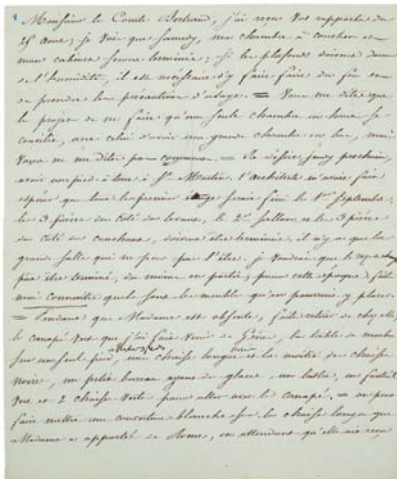 Monsieur le Comte Bertrand, j'ai reçu vos rapports du
25 Aout; je vois que samedy, ma chambre à coucher et
mon cabinet seront terminés; si les plafonds doivent donner
de l'humidité, il est nécessaire d'y faire faire du feu et
de prendre les précautions d'usage. = Vous me dites que
le projet de ne faire qu'une seule chambre en haut se
concilie, avec celui d'avoir une grande chambre en bas, mais
vous ne me dites pas comment. = Je désire, jeudy prochain,
avoir un pied à terre à St. Martin. l'architecte m'avait fait
espérer que tout le premier étage serait fini le 1er Septembre.
les 3 pièces du côté du levant, le 2e sallon et les 3 pièces
du côté du couchant, doivent être terminés, il n'y a que la
grande salle qui ne peut pas l'être. je voudrais que le rez de
pût être terminé, du moins en partie, pour cette époque. faites
moi connaitre quels sont les meubles qu'on pourrait y placer.
= Pendant que Madame est absente, faites retirer de chez elle,
le canapé vert que j'ai fait venir de Gênes, la table de marbre
sur un seul pied, une chaise longue et la moitié des chaises
noires, un petit bureau ayant des glaces, un fauteuil
vert et 2 chaises vertes pour aller avec le canapé. = on peut
faire mettre une couverture blanche sur les chaises longues que
Madame a apportés de Rome, en attendant qu'elle ait reçu